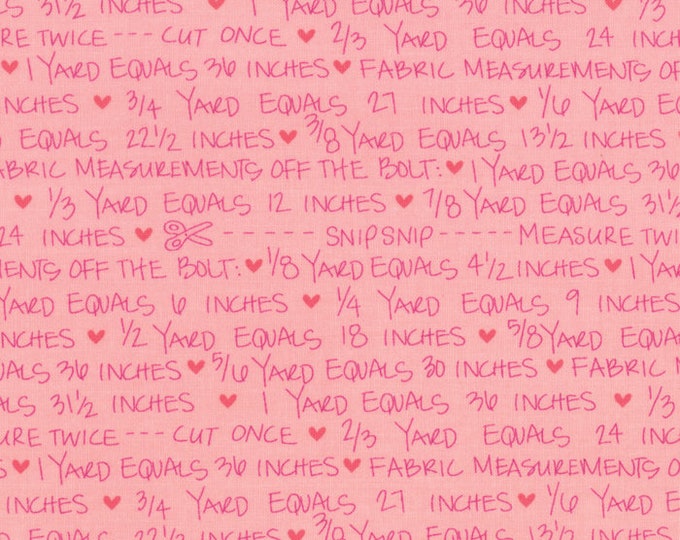 S 31 1/2 INCHES ♥ 1 YARD EQUALS 36 INCHES ♥ 1/3
URE TWICE --- CUT ONCE ♥ 2/3 YARD EQUALS 24 INCHES
♥ 1 YARD EQUALS 36 INCHES ♥ FABRIC MEASUREMENTS OF
INCHES ♥ 3/4 YARD EQUALS 27 INCHES ♥ 1/6 YARD EQUAL
D EQUALS 22 1/2 INCHES ♥ 3/8 YARD EQUALS 13 1/2 INCHES
ABRIC MEASUREMENTS OFF THE BOLT: ♥ 1 YARD EQUALS 36
♥ 1/3 YARD EQUALS 12 INCHES ♥ 7/8 YARD EQUALS 31 1/2
24 INCHES ♥ ----- SNIP SNIP ----- MEASURE TWI
EMENTS OFF THE BOLT: ♥ 1/8 YARD EQUALS 4 1/2 INCHES ♥ 1 YAR
YARD EQUALS 6 INCHES ♥ 1/4 YARD EQUALS 9 INCHES
NCHES ♥ 1/2 YARD EQUALS 18 INCHES ♥ 5/8 YARD EQUA
UALS 36 INCHES ♥ 5/6 YARD EQUALS 30 INCHES ♥ FABRIC
ALS 31 1/2 INCHES ♥ 1 YARD EQUALS 36 INCHES ♥ 1/3
URE TWICE --- CUT ONCE ♥ 2/3 YARD EQUALS 24 INC
S ♥ 1 YARD EQUALS 36 INCHES ♥ FABRIC MEASUREMENTS O
INCHES ♥ 3/4 YARD EQUALS 27 INCHES ♥ 1/6 YARD E
EQUALS 22 1/2 INCHES ♥ 3/8 YARD EQUALS 13 1/2 INCHES